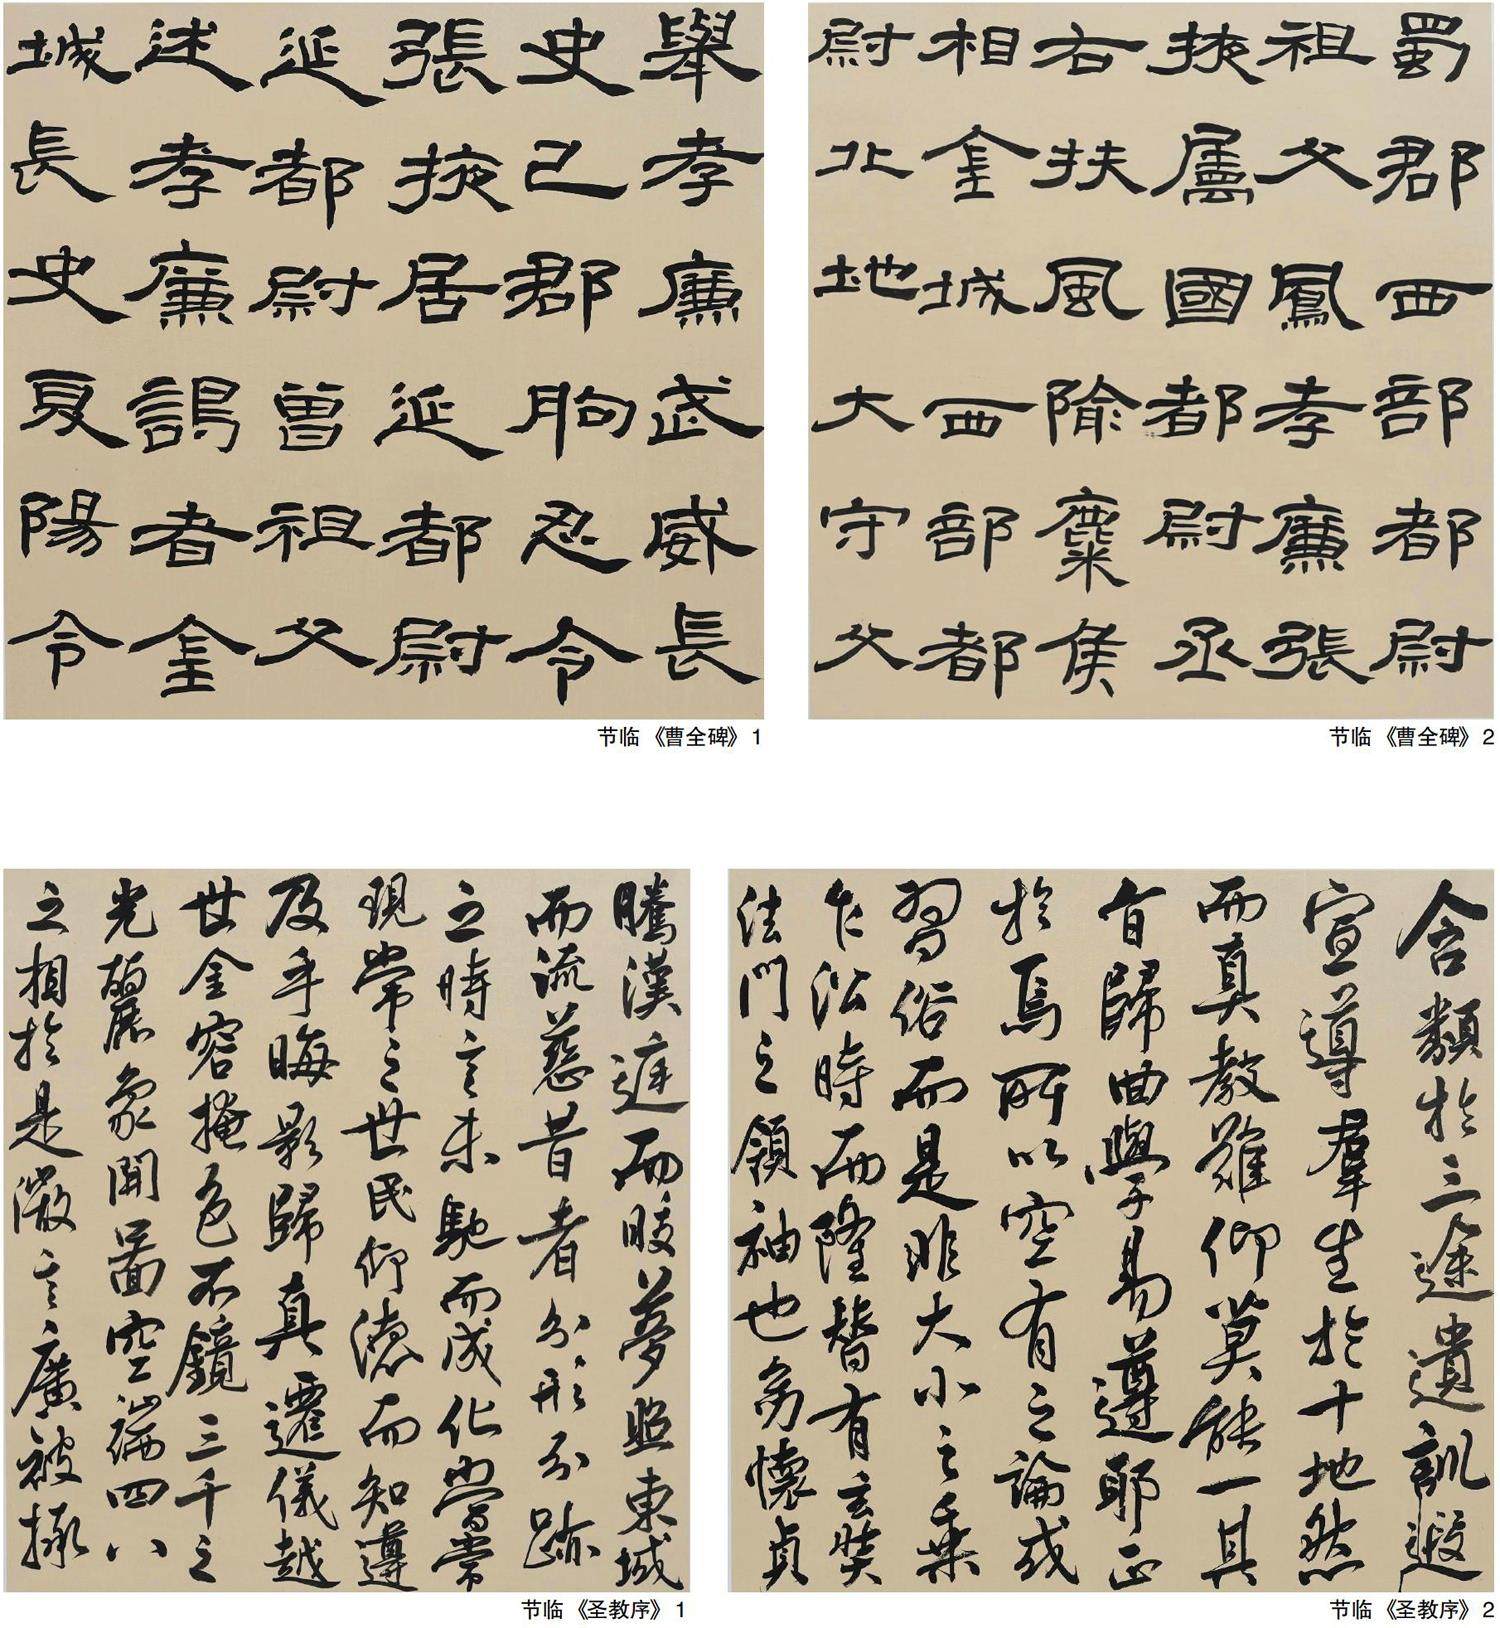 舉孝廉武威長
史巴郡朐忍令
張掖居延都尉
延都尉曾祖父
述孝廉謁者金
城長史夏陽令
节临《曹全碑》1
蜀郡西部都尉
祖父鳳孝廉張
掖屬國都尉丞
右扶風隃麋侯
相金城西部都
尉北地大守父
节临《曹全碑》2
騰漢庭而皎夢照東域
而流慈昔者分形分跡
之時言未馳而成化當常
現常之世民仰德而知遵
及乎晦影歸真遷儀越
世金容掩色不鏡三千之
光麗象開圖空端四八
之相於是微言廣被拯
节临《圣教序》1
含類於三途遺訓遐
宣導羣生於十地然
而真教難仰莫能一其
旨歸曲學易遵耶正
於焉所以空有之論或
習俗而是非大小之乘
乍沿時而隆替有玄奘
法門之領袖也幼懷貞
节临《圣教序》2